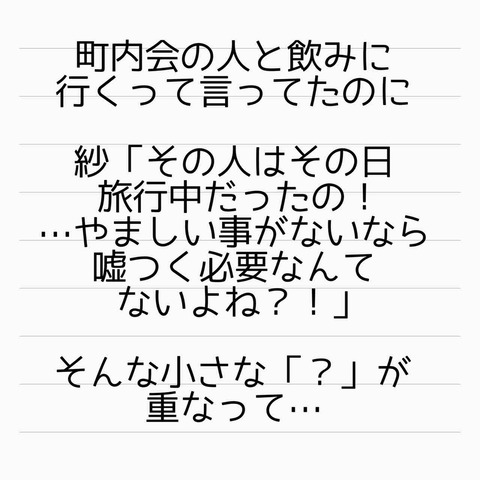 町内会の人と飲みに
行くって言ってたのに
紗「その人はその日
旅行中だったの！
…やましい事がないなら
嘘つく必要なんて
ないよね？！」
そんな小さな「？」が
重なって…